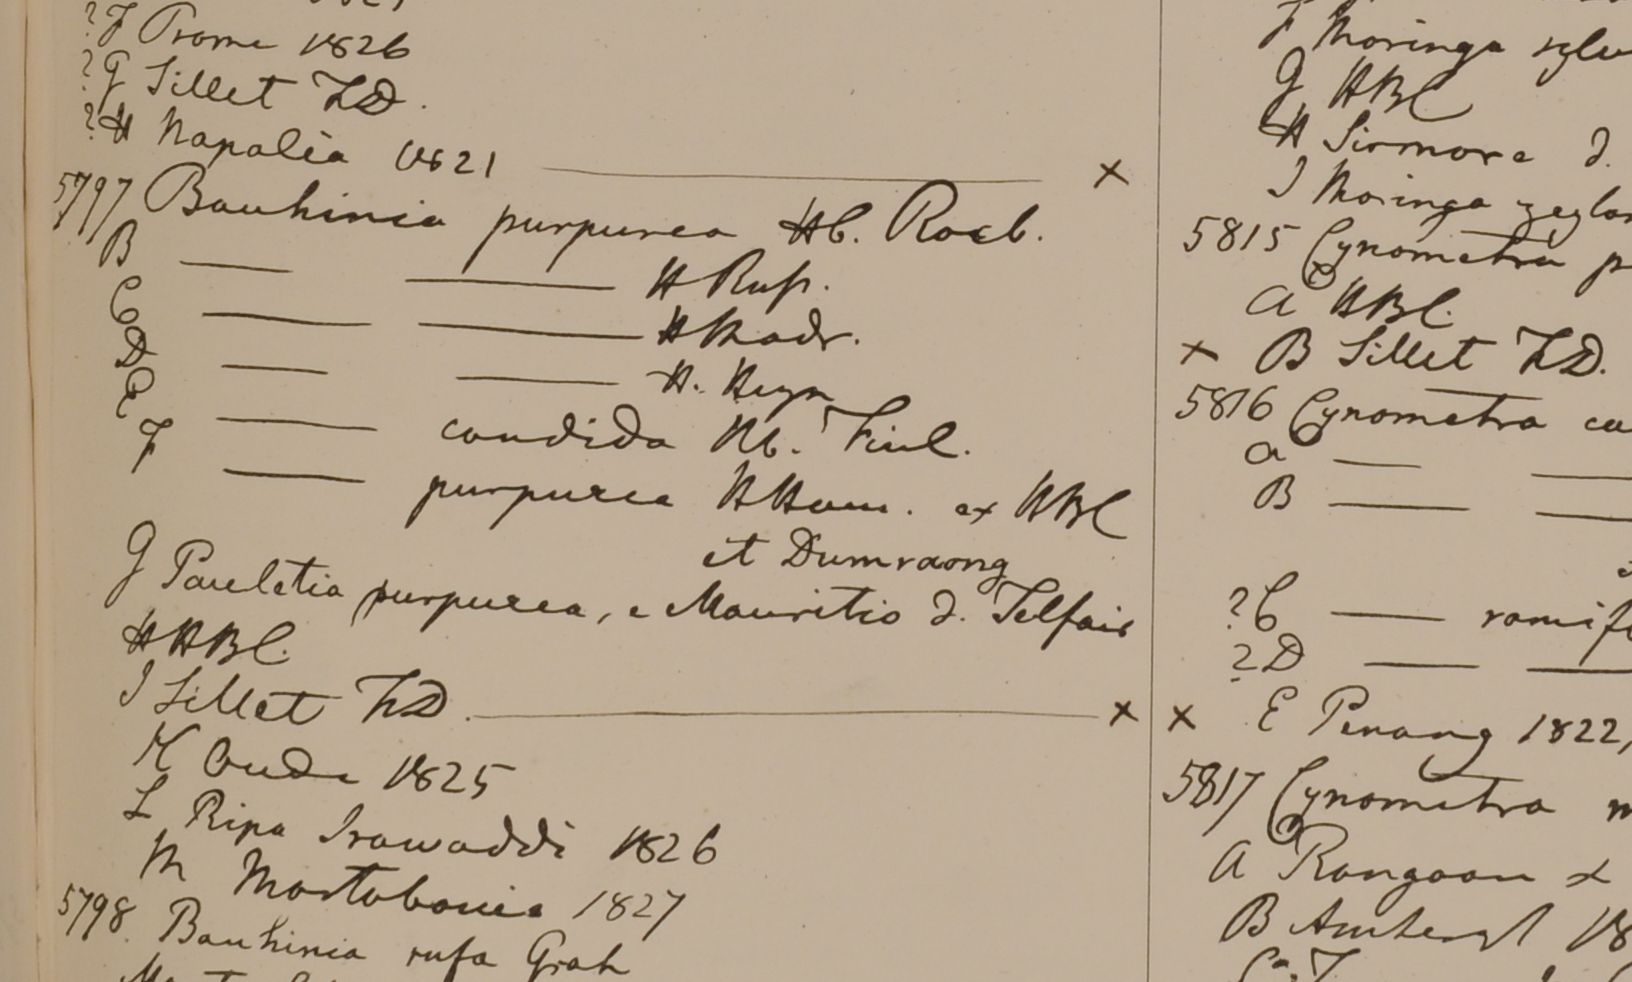 ?F Prome 1826
?G Sillet FD.
?H Napalia 1821 x
5797 Bauhinia purpurea Hb. Roxb.
B H Russ.
C H Madr.
D H. Heyn
E candida Hb. Finl.
F purpurea HHam. ex HBC
et Dumraong
G Pauletia purpurea, e Mauritio d. Telfair
H HBC.
I Sillet FD. x
K Oude 1825
L Ripa Irawaddi 1826
M Martabania 1827
5798. Bauhinia rufa Grah
F Moringa sylv
G HBC
H Sirmore d.
I Moringa zeylan
5815 Cynometra p
A HBC.
x B Sillet FD.
5816 Cynometra ca
A
B
?C ramifl
?D
x E Penang 1822,
5817 Cynometra m
A Rangoon &
B Amherst 18